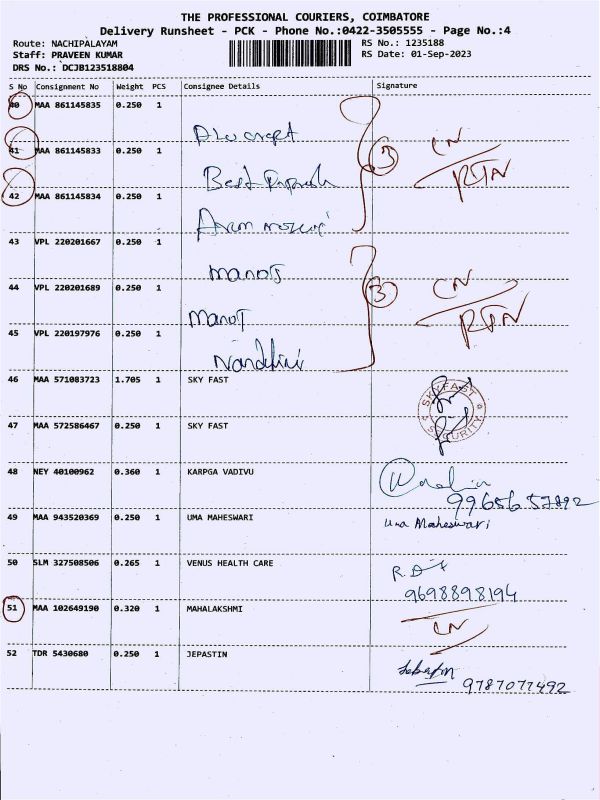 THE PROFESSIONAL COURIERS, COIMBATORE
Delivery Runsheet - PCK - Phone No.:0422-3505555 - Page No.:4
Route: NACHIPALAYAM RS No.: 1235188
Staff: PRAVEEN KUMAR RS Date: 01-Sep-2023
DRS No.: DCJB123518804
S No Consignment No Weight PCS Consignee Details Signature
40 MAA 861145835 0.250 1
41 MAA 861145833 0.250 1 3 CN
Best RTN
42 MAA 861145834 0.250 1
43 VPL 220201667 0.250 1
Manoj
44 VPL 220201689 0.250 1 3 CN
Manoj RTN
45 VPL 220197976 0.250 1
Nandhini
46 MAA 571083723 1.705 1 SKY FAST
SKYFAST SECURITY
47 MAA 572586467 0.250 1 SKY FAST
48 NEY 40100962 0.360 1 KARPGA VADIVU
9965657892
49 MAA 943520369 0.250 1 UMA MAHESWARI Uma Maheswari
50 SLM 327508506 0.265 1 VENUS HEALTH CARE
9698898194
51 MAA 102649190 0.320 1 MAHALAKSHMI
CN
52 TDR 5430680 0.250 1 JEPASTIN
9787077492